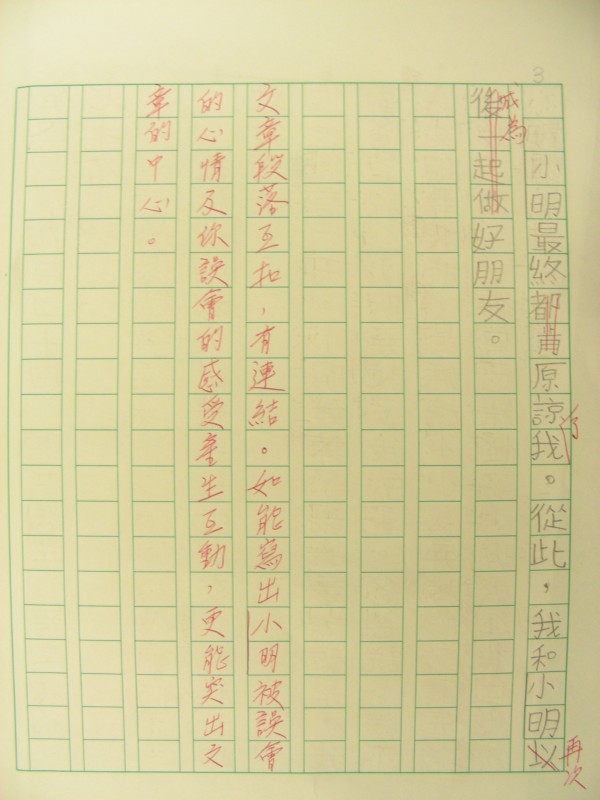 3
小明最終都有原諒我。從此,我和小明以
後一起做好朋友。
了
再次
成為
文章段落互扣,有連結。如能寫出小明被誤會
的心情及你誤會的感受產生互動,更能突出文
章的中心。